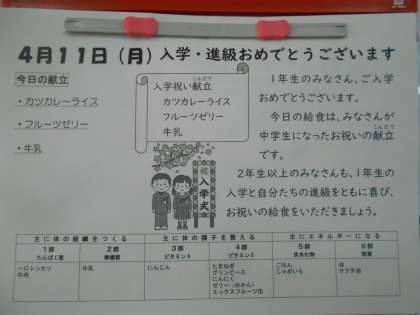 4月11日(月)入学・進級おめでとうございます
今日の献立
・カツカレーライス
・フルーツゼリー
・牛乳
こんだて
入学祝い献立
カツカレーライス
フルーツゼリー
牛乳
祝
入学式
1年生のみなさん、ご入学
おめでとうございます。
今日の給食は、みなさんが
こんだて
中学生になったお祝いの献立
です。
2年生以上のみなさんも、1年生の
入学と自分たちの進級をともに喜び、
お祝いの給食をいただきましょう。
主に体の組織をつくる 主に体の調子を整える 主にエネルギーになる
1群 2群 3群 4群 5群 6群
たんぱく質 無機質 ビタミンA ビタミンC 炭水化物 脂質
一口トンカツ 牛乳 にんじん たまねぎ ごはん 油
牛肉 グリンピース じゃがいも サラダ油
にんにく
ゼリー(みかん)
ミックスフルーツ